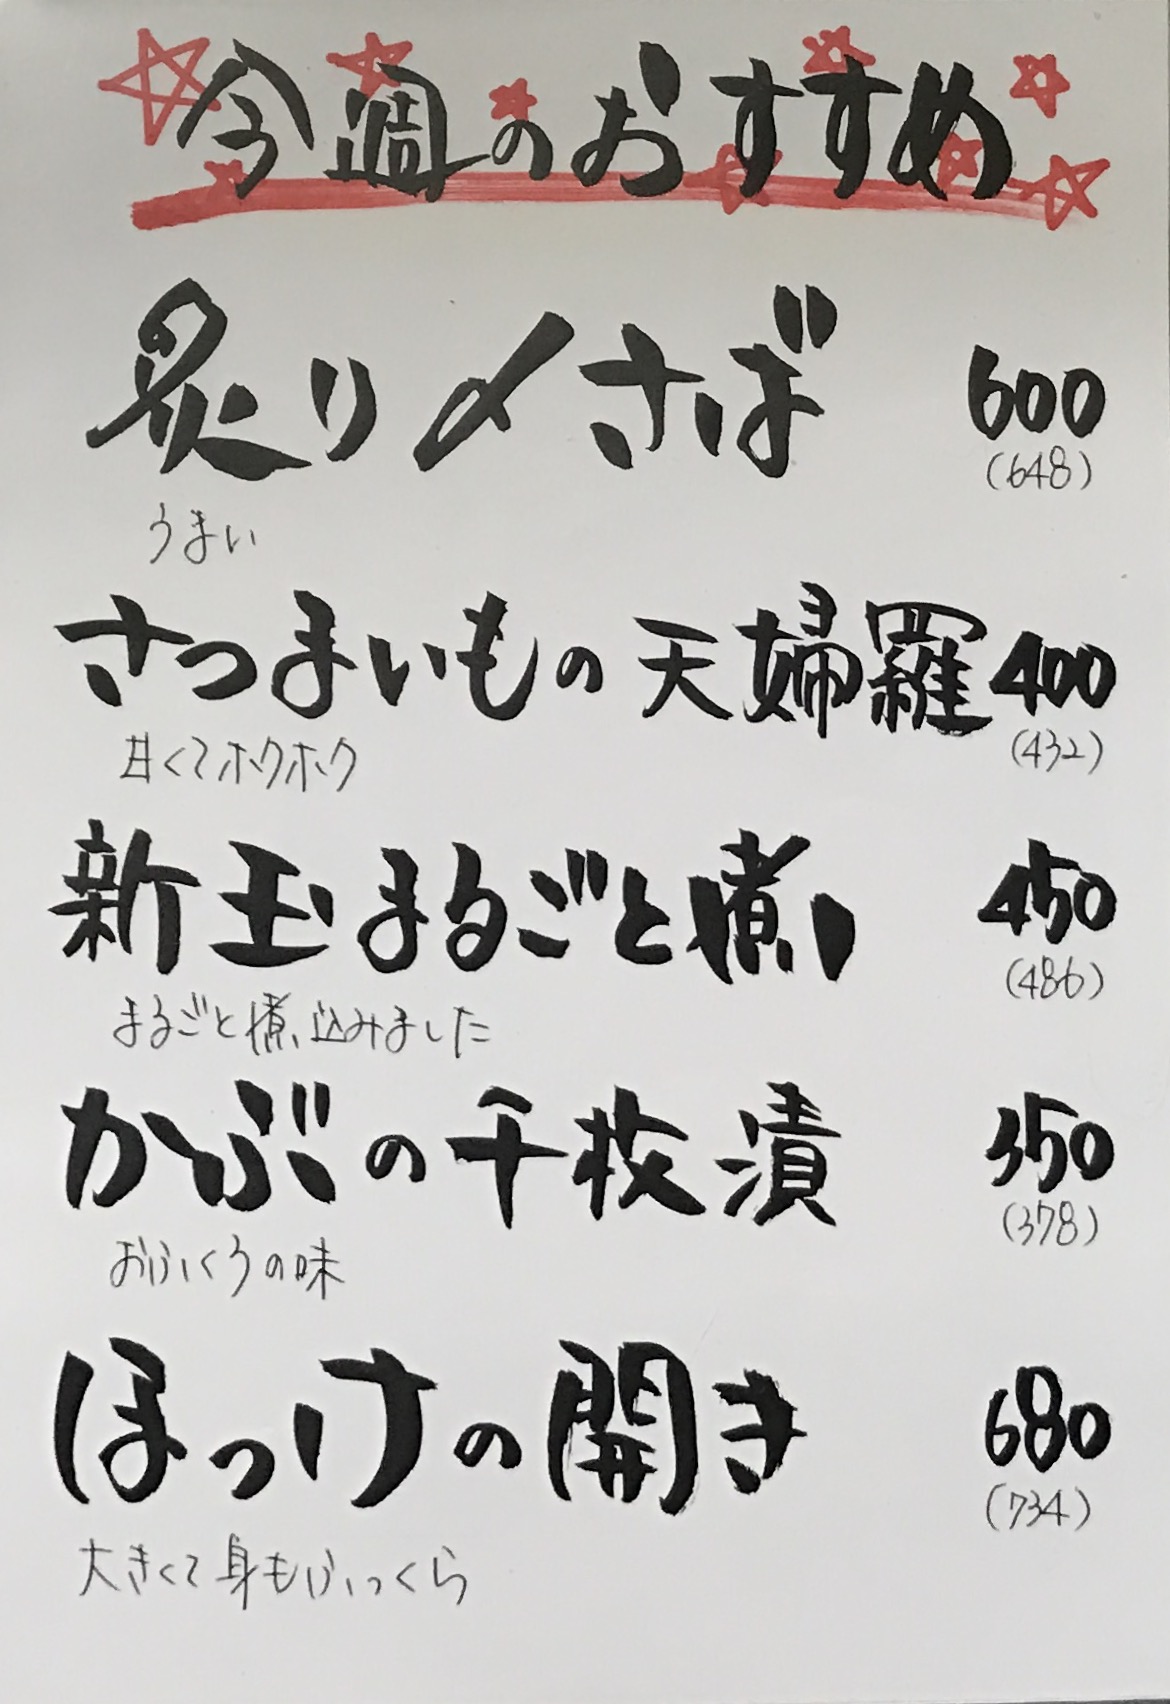 今週のおすすめ
炙り〆さば 600
(648)
うまい
さつまいもの天婦羅 400
(432)
甘くてホクホク
新玉まるごと煮 450
(486)
まるごと煮込みました
かぶの千枚漬 350
(378)
おふくろの味
ほっけの開き 680
(734)
大きくて身もふっくら